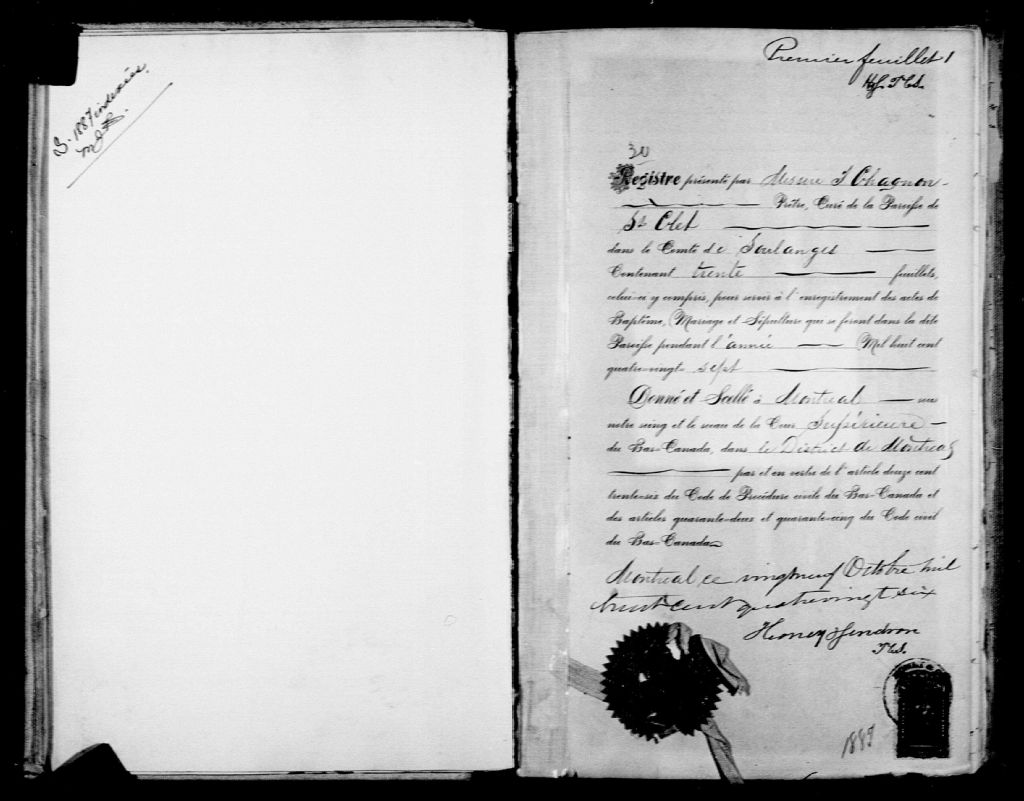 S. 1887 indexée.
Premier feuillet 1
H&G. P.C.S.
30
Registre présenté par Messire J Chagnon
Prêtre, Curé de la Paroisse de
St Clet
dans le Comté de Soulanges
Contenant trente feuillets,
celui-ci y compris, pour servir à l'enregistrement des actes de
Baptême, Mariage et Sépulture qui se feront dans la dite
Paroisse pendant l'année Mil huit cent
quatre-vingt sept
Donné et Scellé à Montreal sous
notre seing et le sceau de la Cour Supérieure
du Bas-Canada, dans le District de Montreal
par et en vertu de l'article douze cent
trente-six du Code de Procédure civile du Bas-Canada et
des articles quarante-deux et quarante-cinq du Code civil
du Bas-Canada
Montreal ce vingtneuf Octobre mil
huit cent quatrevingt six
Honey & Gendron
P.C.S.
1887